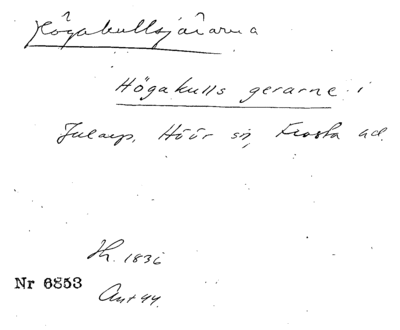 Högakullsjärarna
Högakulls gerarne i
Jularp, Höör sn, Frosta hd.
Hr. 1836
Nr 6853
Ant 44.